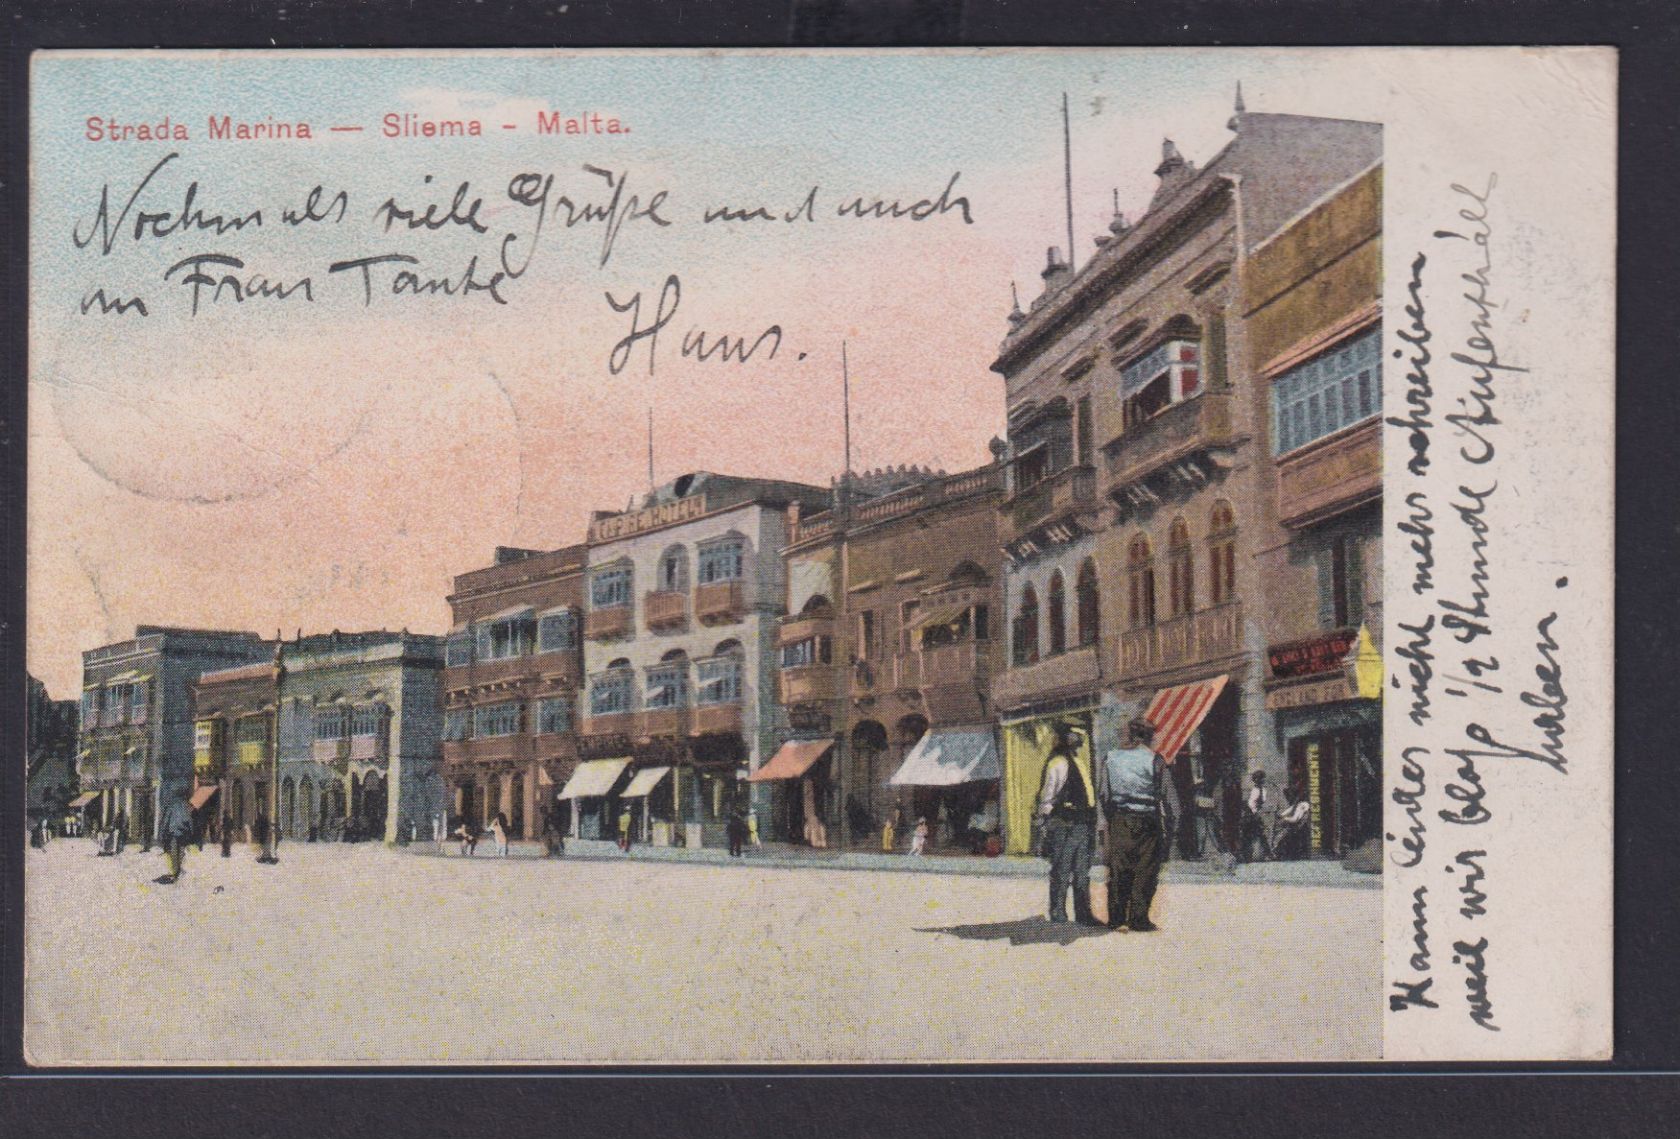 Strada Marina — Sliema - Malta.
Nochmals viele Grüße und auch
an Frau Tante
Hans.
Kann leider nicht mehr schreiben
weil wir bloß 1/2 Stunde Aufenthalt
haben.
EMPIRE HOTEL
REFRESHMENTS